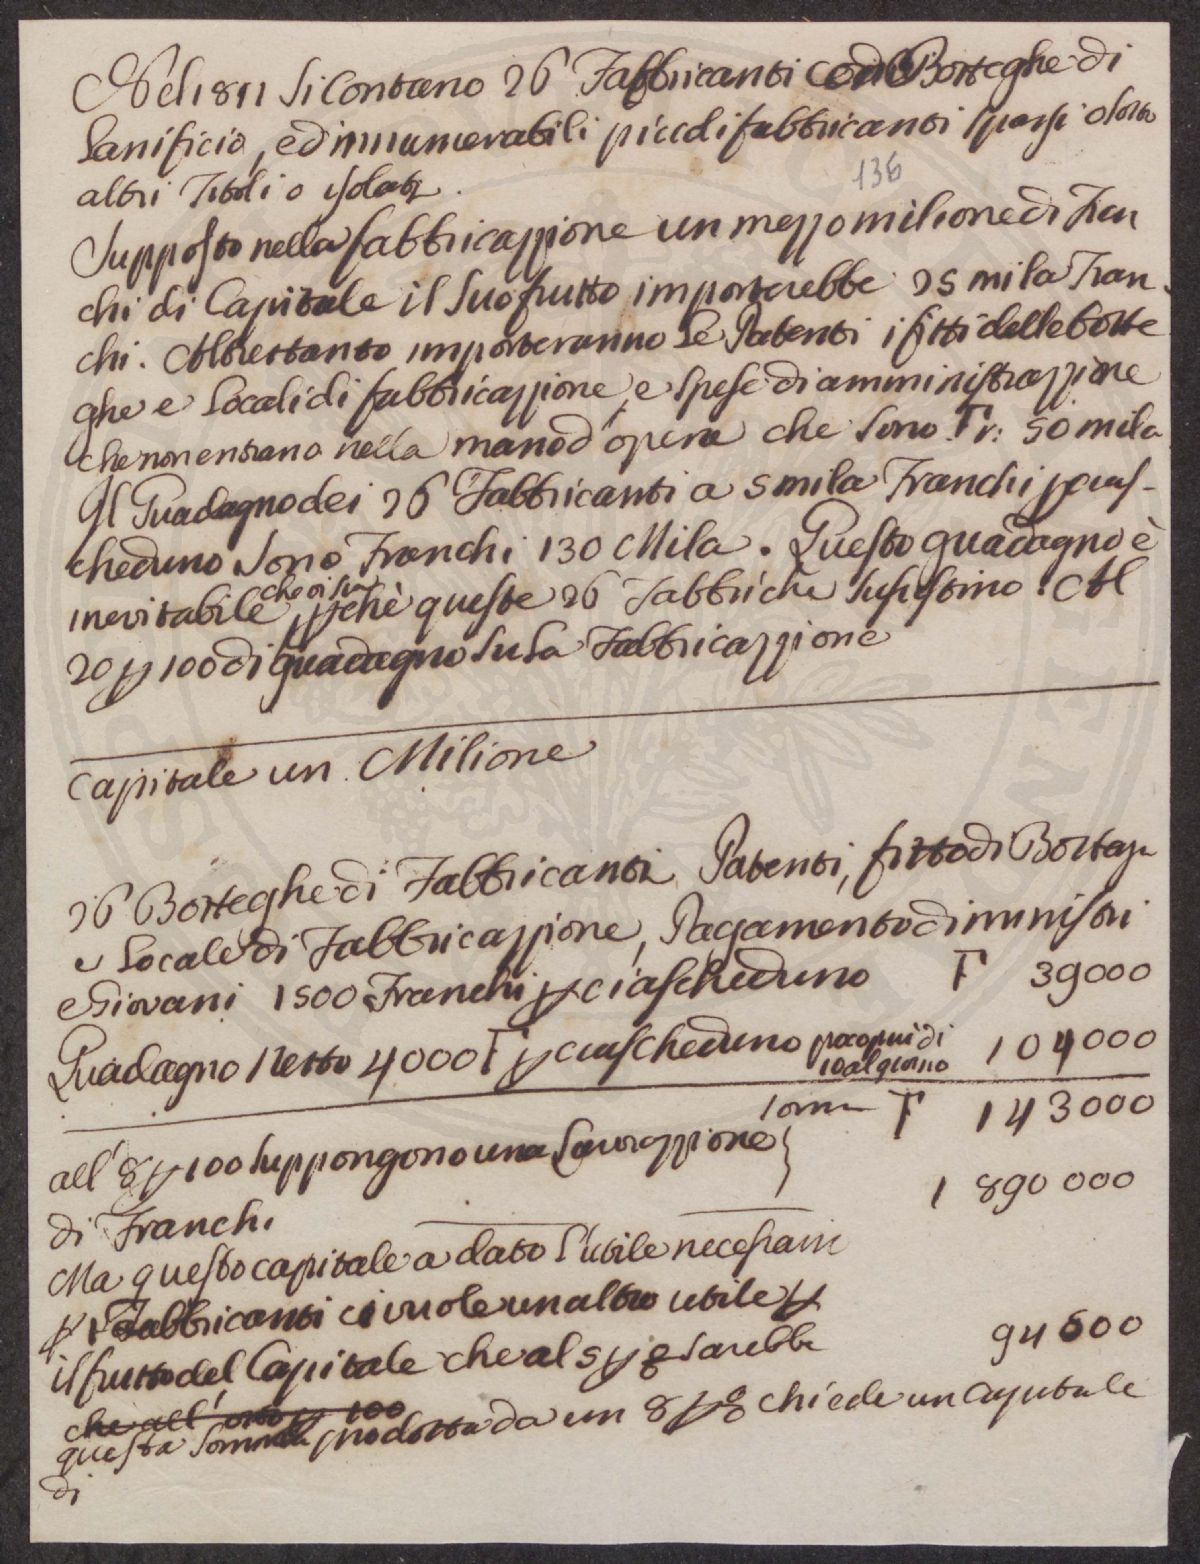 Nel 1811 si contano 26 Fabbricanti con Botteghe di
Lanificio, ed innumerabili piccoli fabbricanti sparsi o sotto
altri Titoli o isolati.
136
Supposto nella fabbricazzione un mezzo milione di Fran
chi di Capitale il suo frutto importerebbe 25 mila Fran-
chi. Altrettanto importeranno le Patenti i fitti delle botte
ghe e Locali di fabbricazzione, e spese di amministrazzione
che non entrano nella mano d'opera che sono Fr: 50 mila
Il Guadagno dei 26 Fabbricanti a 5 mila Franchi p cias-
cheduno sono Franchi 130 Mila. Questo guadagno è
inevitabile pchè queste 26 Fabbriche sussistino. Al
20 p 100 di guadagno su la Fabbricazzione
Capitale un Milione
26 Botteghe di Fabbricanti Patenti, fitto di Bottega
e Locale di Fabbricazzione, Pagamento di ministri
e Giovani 1500 Franchi p ciascheduno F 39000
Guadagno Netto 4000 F p ciascheduno poco più di
10 al giorno 104000
somma F 143000
all' 8 p 100 suppongono una Lavorazzione
di Franchi 1890000
Ma questo capitale a dato l'utile necessario
p i Fabbricanti ci vuole un altro utile p
il frutto del Capitale che al 5 p % sarebbe 94500
che all' otto p 100
questa somma prodotta da un 8 p % chiede un Capitale
di